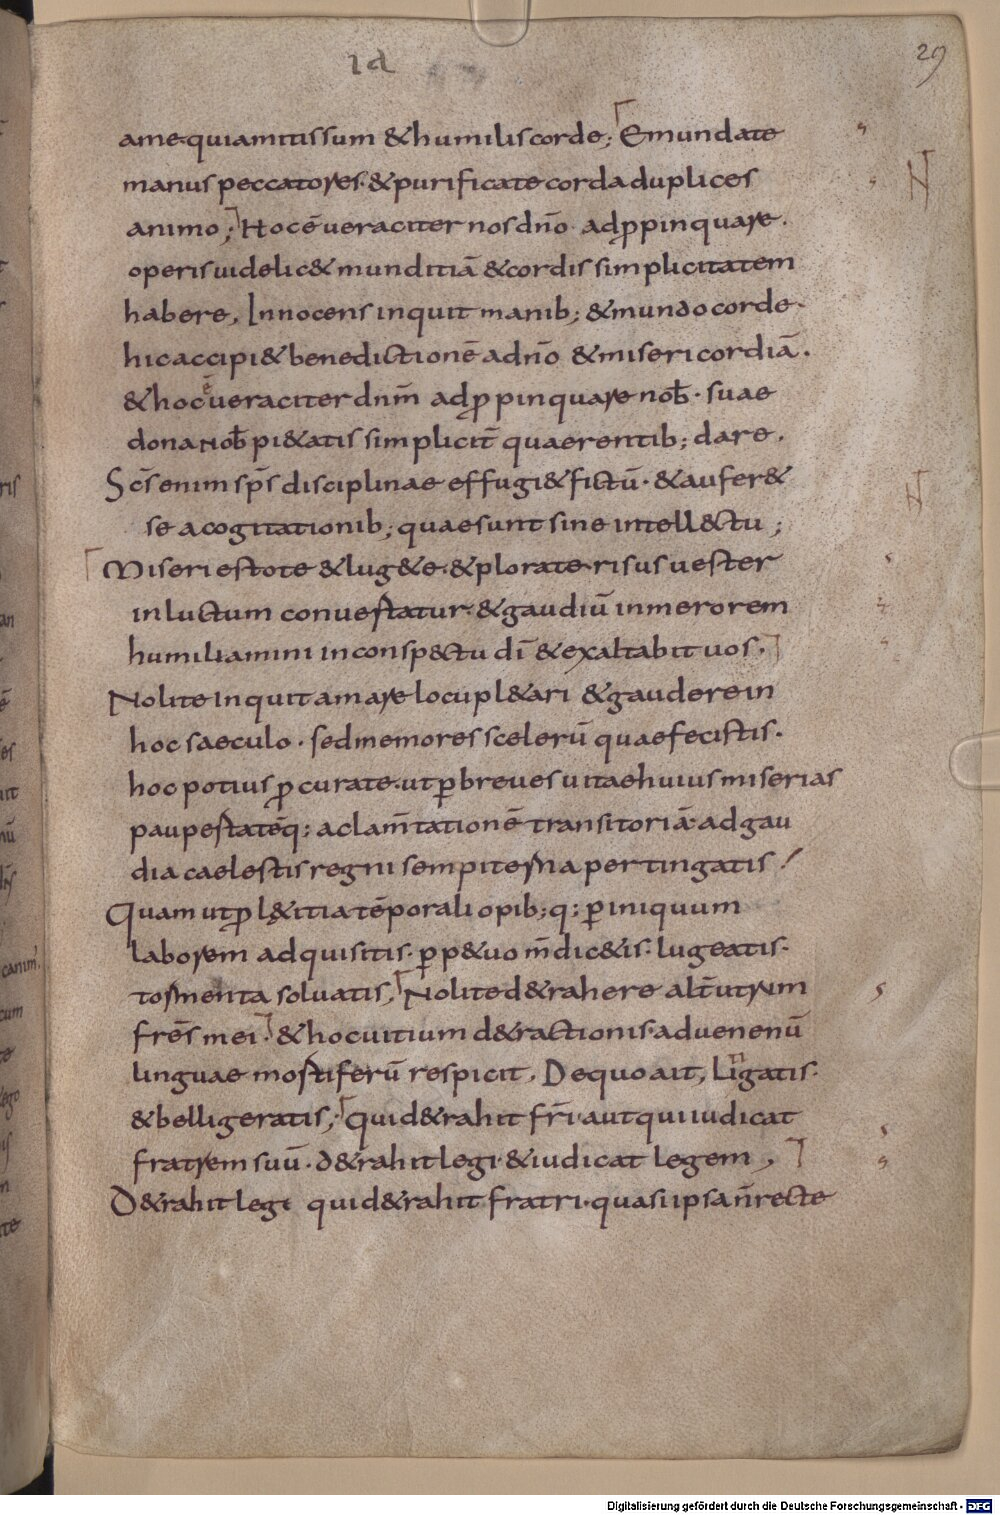 Id
29
ame quia mitis sum & humilis corde; Emundate
manus peccatores. & purificate corda duplices
animo; Hoc ē ueraciter nos dn̄o adp̱pinquare.
operis uidelic& munditiā & cordis simplicitatem
habere, Innocens inquit manib; & mundo corde.
hic accipi& benedictionē a dn̄o & misericordiā.
& hoc ē ueraciter dnm̄ adp̱pinquare nob̄. suae
dona nob̄ pi&atis simplicit̄ quaerentib; dare.
Sc̄s enim sp̄s disciplinae effugi& fictū. & aufer&
se a cogitationib; quae sunt sine intell&tu;
Miseri estote & lug&e. & plorate. risus uester
in luctum conuertatur. & gaudiū in merorem
humiliamini in consp&tu dī & exaltabit uos.
Nolite inquit amare locupl&ari & gaudere in
hoc saeculo. sed memores scelerū quae fecistis.
hoc potius p̱curate. ut p̱ breues uitae huius miserias
paupertatēq; ac lam̄tationē transitoriā. ad gau
dia caelestis regni sempiterna pertingatis!
Quam ut p̱ l&itia tēporali opib;q; p̱ iniquum
laborem adquisitis. p̱p&uo m̄dic&is. lugeatis.
tormenta soluatis, Nolite d&rahere alt̄utrum
frēs mei. & hoc uitium d&ractionis. ad uenenū
linguae mortiferū respicit. De quo ait, Litigatis.
& belligeratis; qui d&rahit fr̄i. aut qui iudicat
fratrem suū. d&rahit legi. & iudicat legem,
D&rahit legi qui d&rahit fratri. quasi ipsa n̄ recte
Digitalisierung gefördert durch die Deutsche Forschungsgemeinschaft - DFG